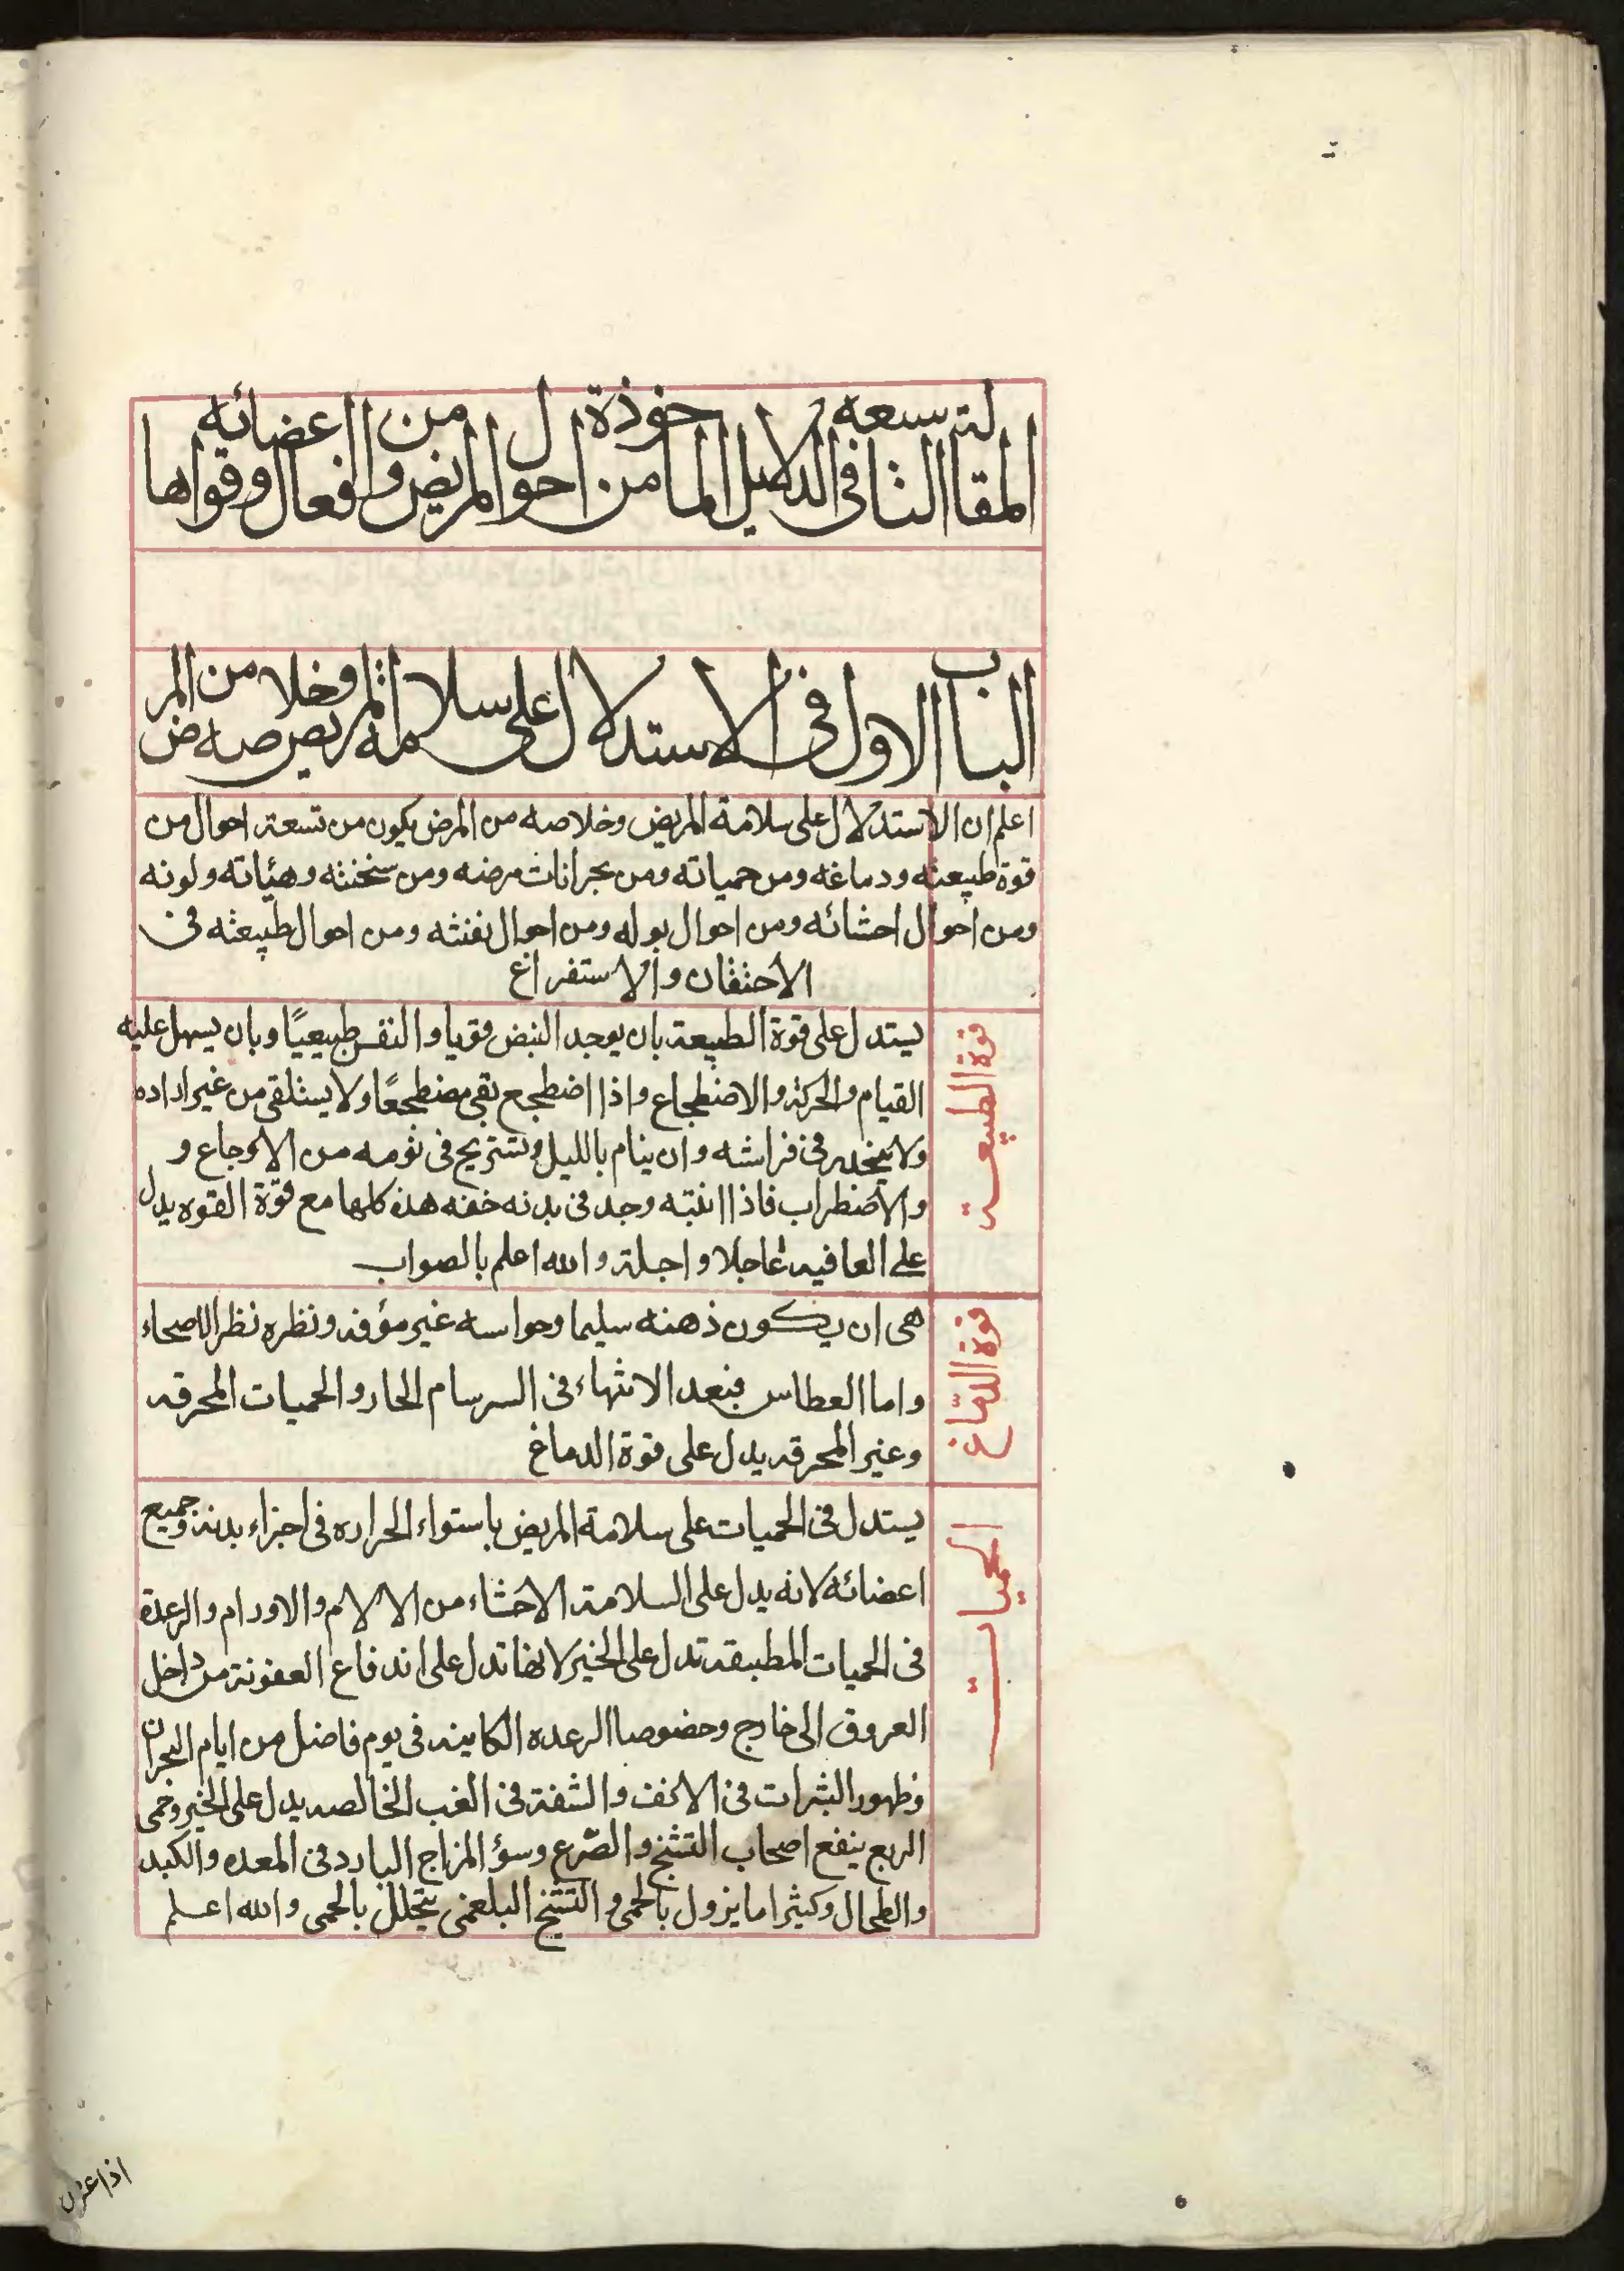 المقالة التاسعة في الدلايل الماخوذة من احوال المريض وافعال اعضائه وقواها
الباب الاول في الاستدلال على سلامة المريض وخلاصه من المرض
اعلم ان الاستدلال على سلامة المريض وخلاصه من المرض يكون من تسعة احوال من
قوة طبيعته ودماغه ومن حمياته ومن بحرانات مرضه ومن سخنته وهئياته ولونه
ومن احوال احشائه ومن احوال بوله ومن احوال نفثه ومن احوال طبيعته في
الاحتقان والاستفراغ
قوة الطبيعة
يستدل على قوة الطبيعة بان يوجد النبض قويا والنفس طبيعيًا وبان يسهل عليه
القيام والحركة والاضطجاع واذا اضطجع بقي مضطجعًا ولا يستلقي من غير اراده
ولا ينحدر في فراشه وان ينام بالليل وتستريح في نومه من الاوجاع و
والاضطراب فاذا انتبه وجد في بدنه خفه هذه كلها مع قوّة القوه يدل
على العافيه عاجلا واجلة والله اعلم بالصواب
قوة الدّماغ
هي ان يكون ذهنه سليما وحواسه غير مؤفه ونظره نظر الاصحاء
واما العطاس فبعد الانتهاء في السرسام الحار والحميات المحرقه
وغير المحرقه يدل على قوة الدماغ
الحميات
يستدل في الحميات على سلامة المريض باستواء الحراره في اجزاء بدنه وجميع
اعضائه لانه يدل على السلامة الاحشاء من الالام والاورام والرعدة
في الحميات المطبقة تدل على الخير لانها تدل على اندفاع العفونة من داخل
العروق الى خارج وخصوصا الرعده الكاينه في يوم فاضل من ايام البحران
وظهور البثرات في الانف والشفة في الغب الخالصه يدل على الخير وحمى
الربع ينفع اصحاب التشنج والصّرع وسؤ المزاج البارد في المعده والكبد
والطحال وكثيرا ما يزول بالحمى والتشنج البلغمي يتحلل بالحمى والله اعلم